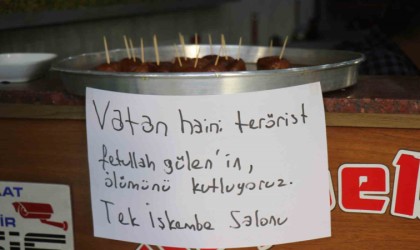 Vatan haini terörist
fetullah gülen'in,
ölümünü kutluyoruz.
Tek İşkembe Salonu